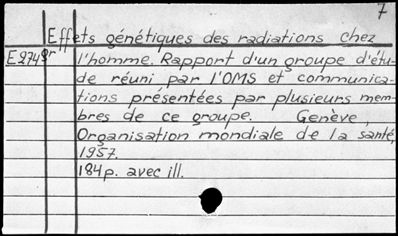 7
Effets génétiques des radiations chez
E274gr l'homme. Rapport d'un groupe d'étu-
de réuni par l'OMS et communica-
tions présentées par plusieurs mem-
bres de ce groupe. Genève,
Organisation mondiale de la santé,
1957.
184p. avec ill.